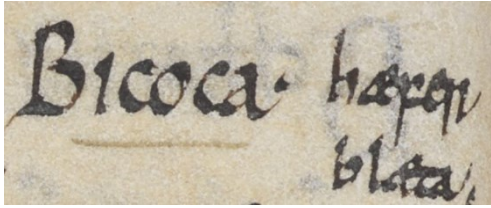 Bicoca· hæferꞃ
blæta,